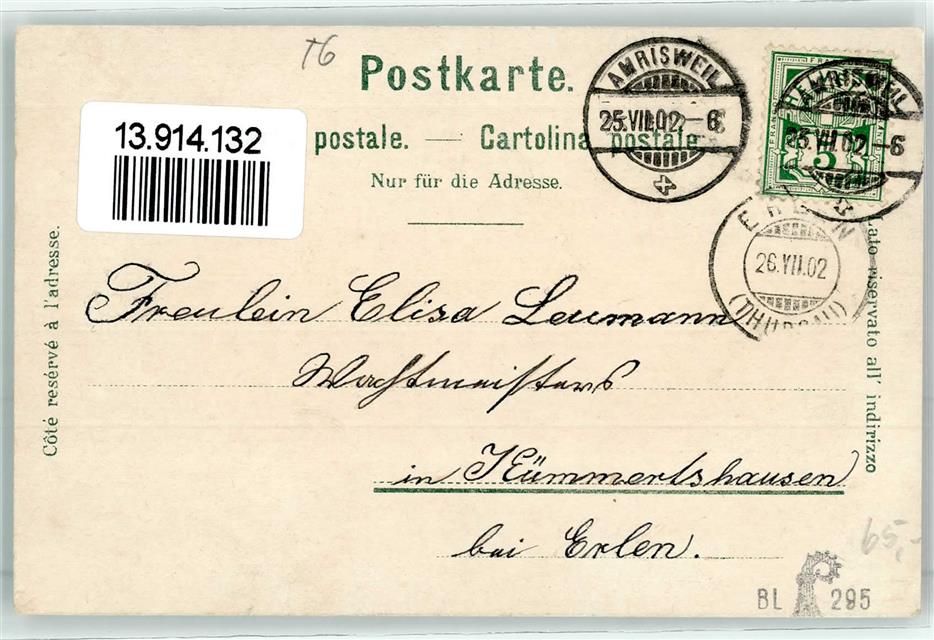 T6
Postkarte.
13.914.132
postale. — Cartolina postale
Nur für die Adresse.
AMRISWEIL
25.VII.02-6
AMRISWEIL
25.VII.02-6
5
ERLEN
26.VII.02
(THURGAU)
Côté resérvé à l'adresse.
Lato riservato all' indirizzo
Freulein Elisa Leumann
Wachtmeisters
in Kümmertshausen
bei Erlen.
65,-
BL 295